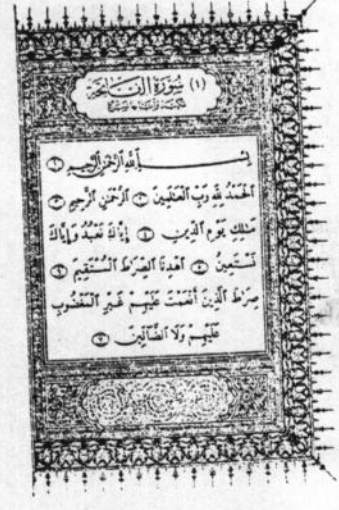 (١) سُورَةُ الْفَاتِحَةِ
بِسْمِ اللَّهِ الرَّحْمَٰنِ الرَّحِيمِ ١
الْحَمْدُ لِلَّهِ رَبِّ الْعَٰلَمِينَ ٢ الرَّحْمَٰنِ الرَّحِيمِ ٣
مَٰلِكِ يَوْمِ الدِّينِ ٤ إِيَّاكَ نَعْبُدُ وَإِيَّاكَ
نَسْتَعِينُ ٥ اهْدِنَا الصِّرَٰطَ الْمُسْتَقِيمَ ٦
صِرَٰطَ الَّذِينَ أَنْعَمْتَ عَلَيْهِمْ غَيْرِ الْمَغْضُوبِ
عَلَيْهِمْ وَلَا الضَّالِّينَ ٧